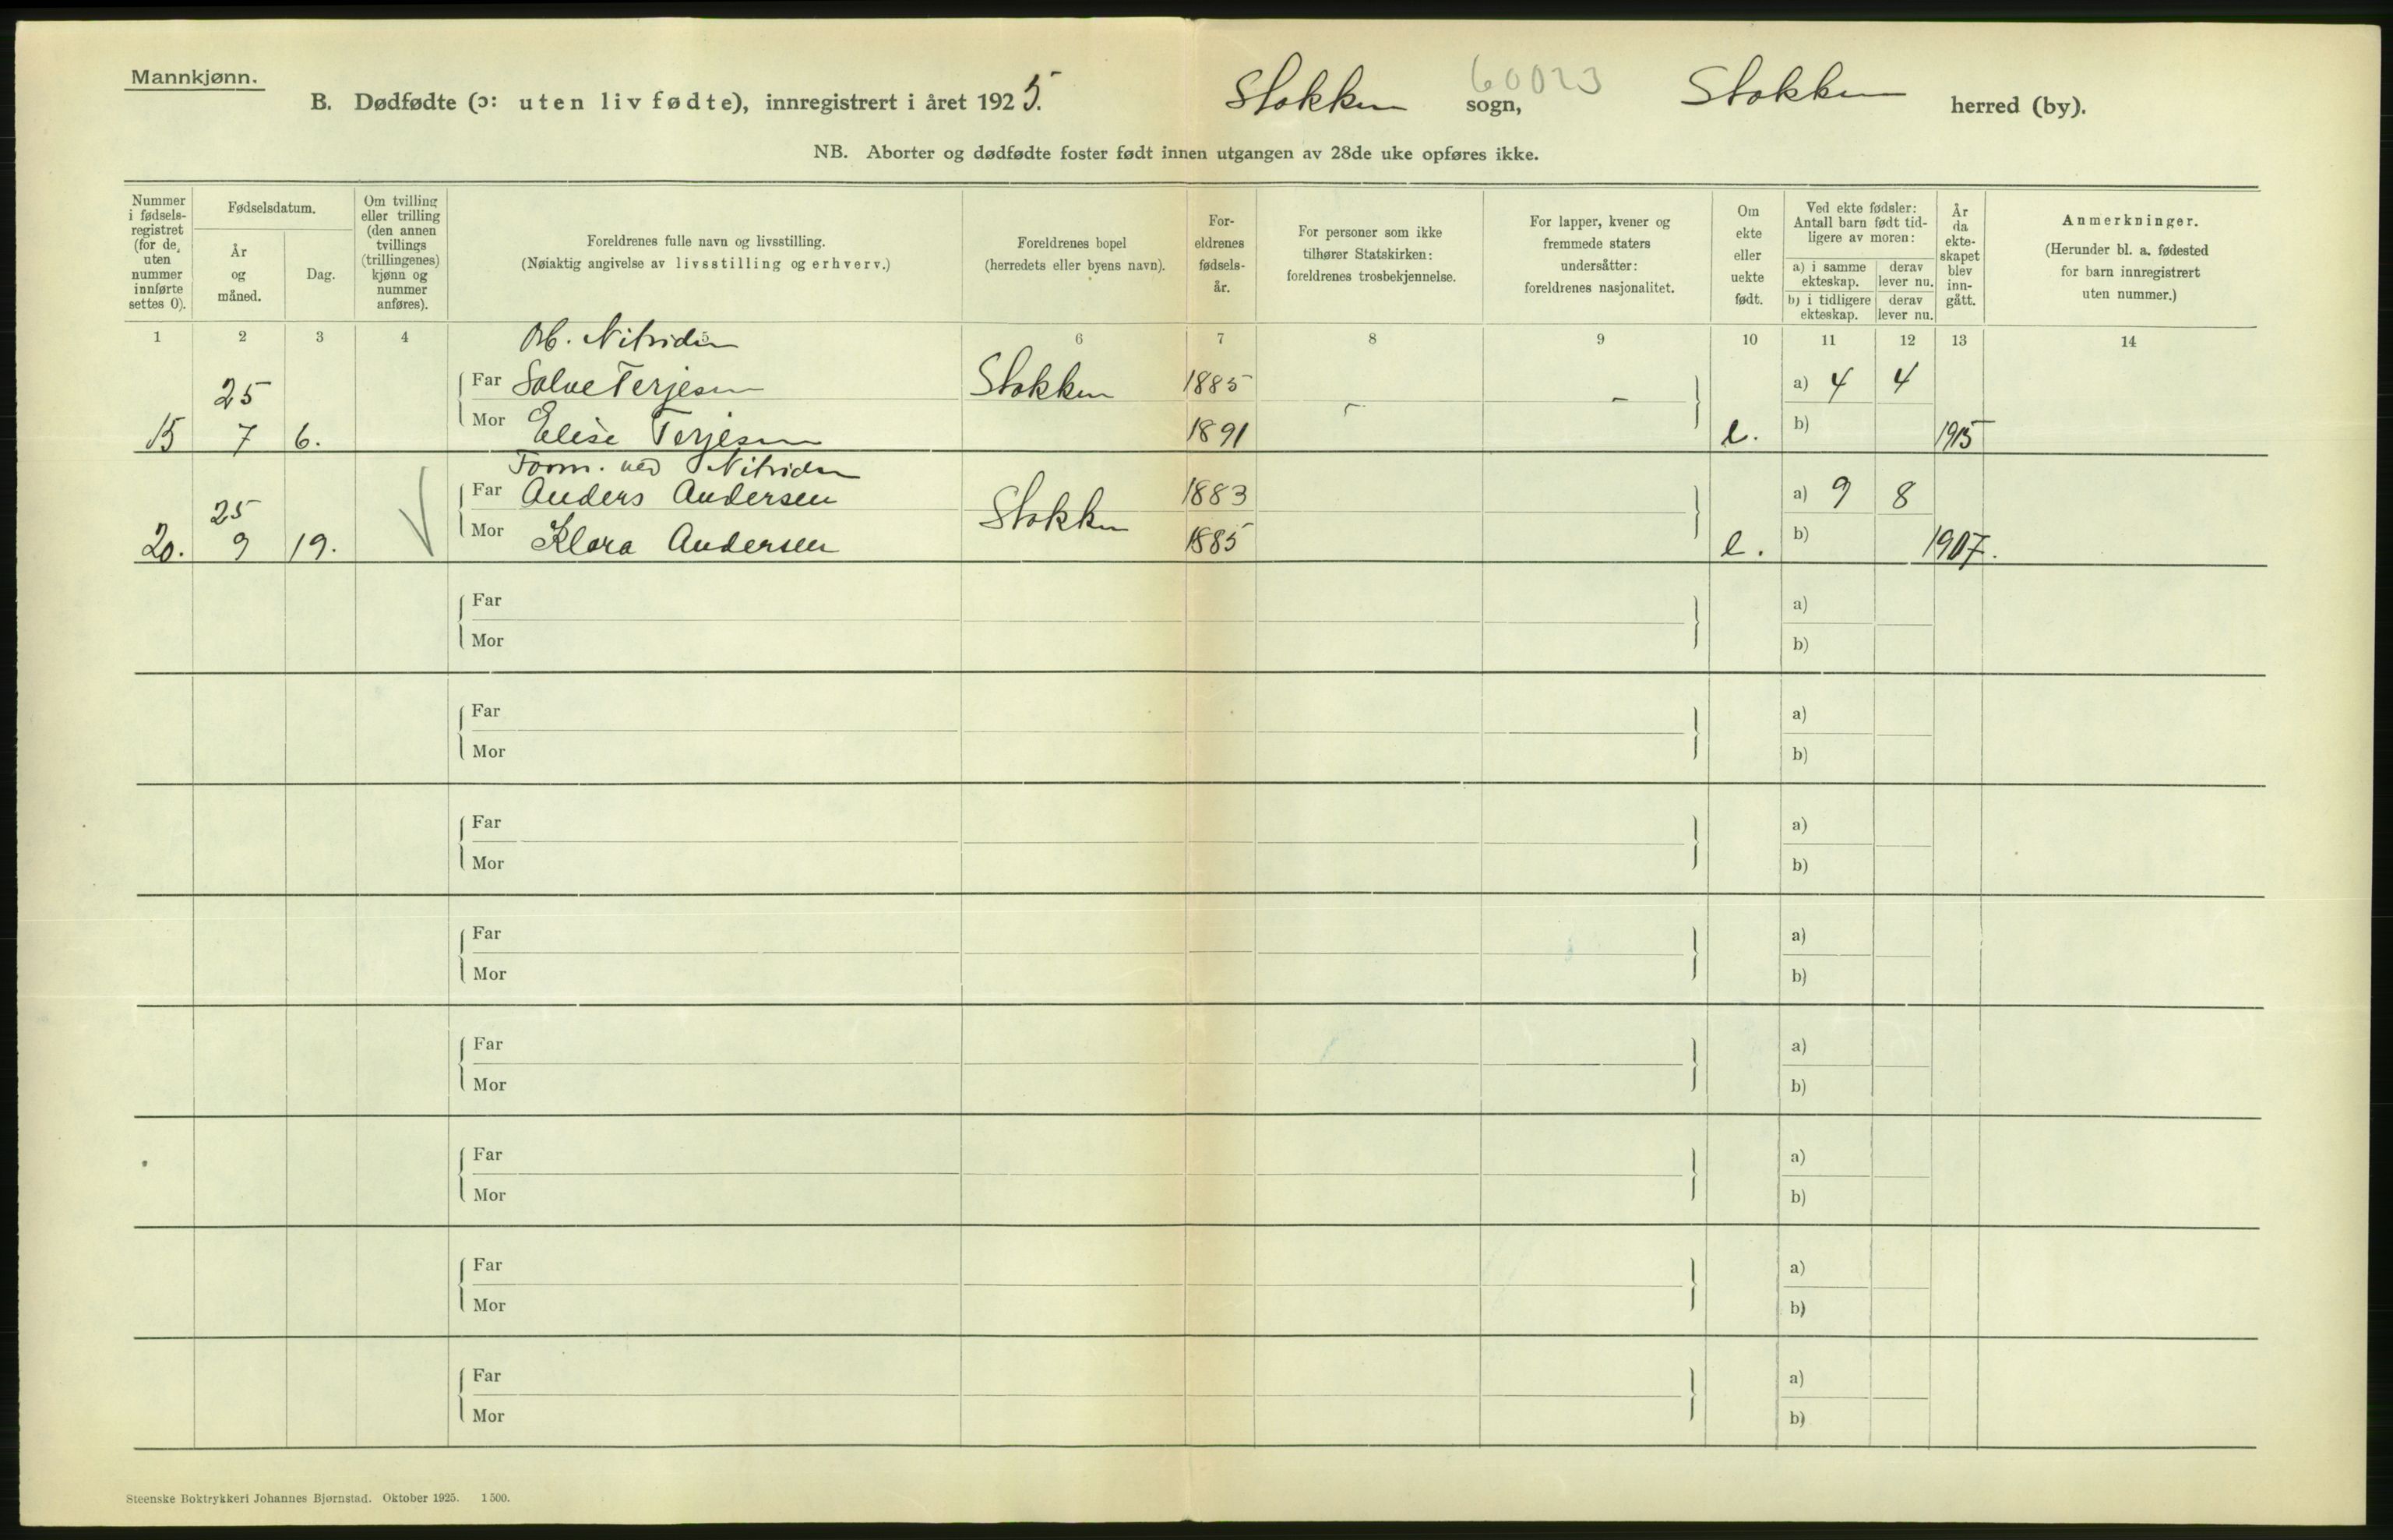 Mannkjønn.
B. Dødfødte (ɔ: uten liv fødte), innregistrert i året 1925. Stokken sogn, 60023 Stokken herred (by).
NB. Aborter og dødfødte foster født innen utgangen av 28de uke opføres ikke.
Nummer i fødsels-registret (for de uten nummer innførte settes 0).
Fødselsdatum.
År og måned.
Dag.
Om tvilling eller trilling (den annen tvillings (trillingenes) kjønn og nummer anføres).
Foreldrenes fulle navn og livsstilling.
(Nøiaktig angivelse av livsstilling og erhverv.)
Foreldrenes bopel
(herredets eller byens navn).
For-eldrenes fødsels-år.
For personer som ikke tilhører Statskirken: foreldrenes trosbekjennelse.
For lapper, kvener og fremmede staters undersåtter: foreldrenes nasjonalitet.
Om ekte eller uekte født.
Ved ekte fødsler: Antall barn født tid-ligere av moren:
a) i samme ekteskap. derav lever nu.
b) i tidligere ekteskap. derav lever nu.
År da ekte-skapet blev inn-gått.
Anmerkninger.
(Herunder bl. a. fødested for barn innregistrert uten nummer.)
1 2 3 4 5 6 7 8 9 10 11 12 13 14
Arb. Nitriden
25 Far Salve Terjesen Stokken 1885 a) 4 4
15 7 6. Mor Elise Terjesen 1891 - - e. b) 1915
Form. ved Nitriden
25 Far Anders Andersen Stokken 1883 a) 9 8
20. 9 19. Mor Klara Andersen 1885 e. b) 1907.
Far a)
Mor b)
Far a)
Mor b)
Far a)
Mor b)
Far a)
Mor b)
Far a)
Mor b)
Far a)
Mor b)
Far a)
Mor b)
Far a)
Mor b)
Steenske Boktrykkeri Johannes Bjørnstad. Oktober 1925. 1500.